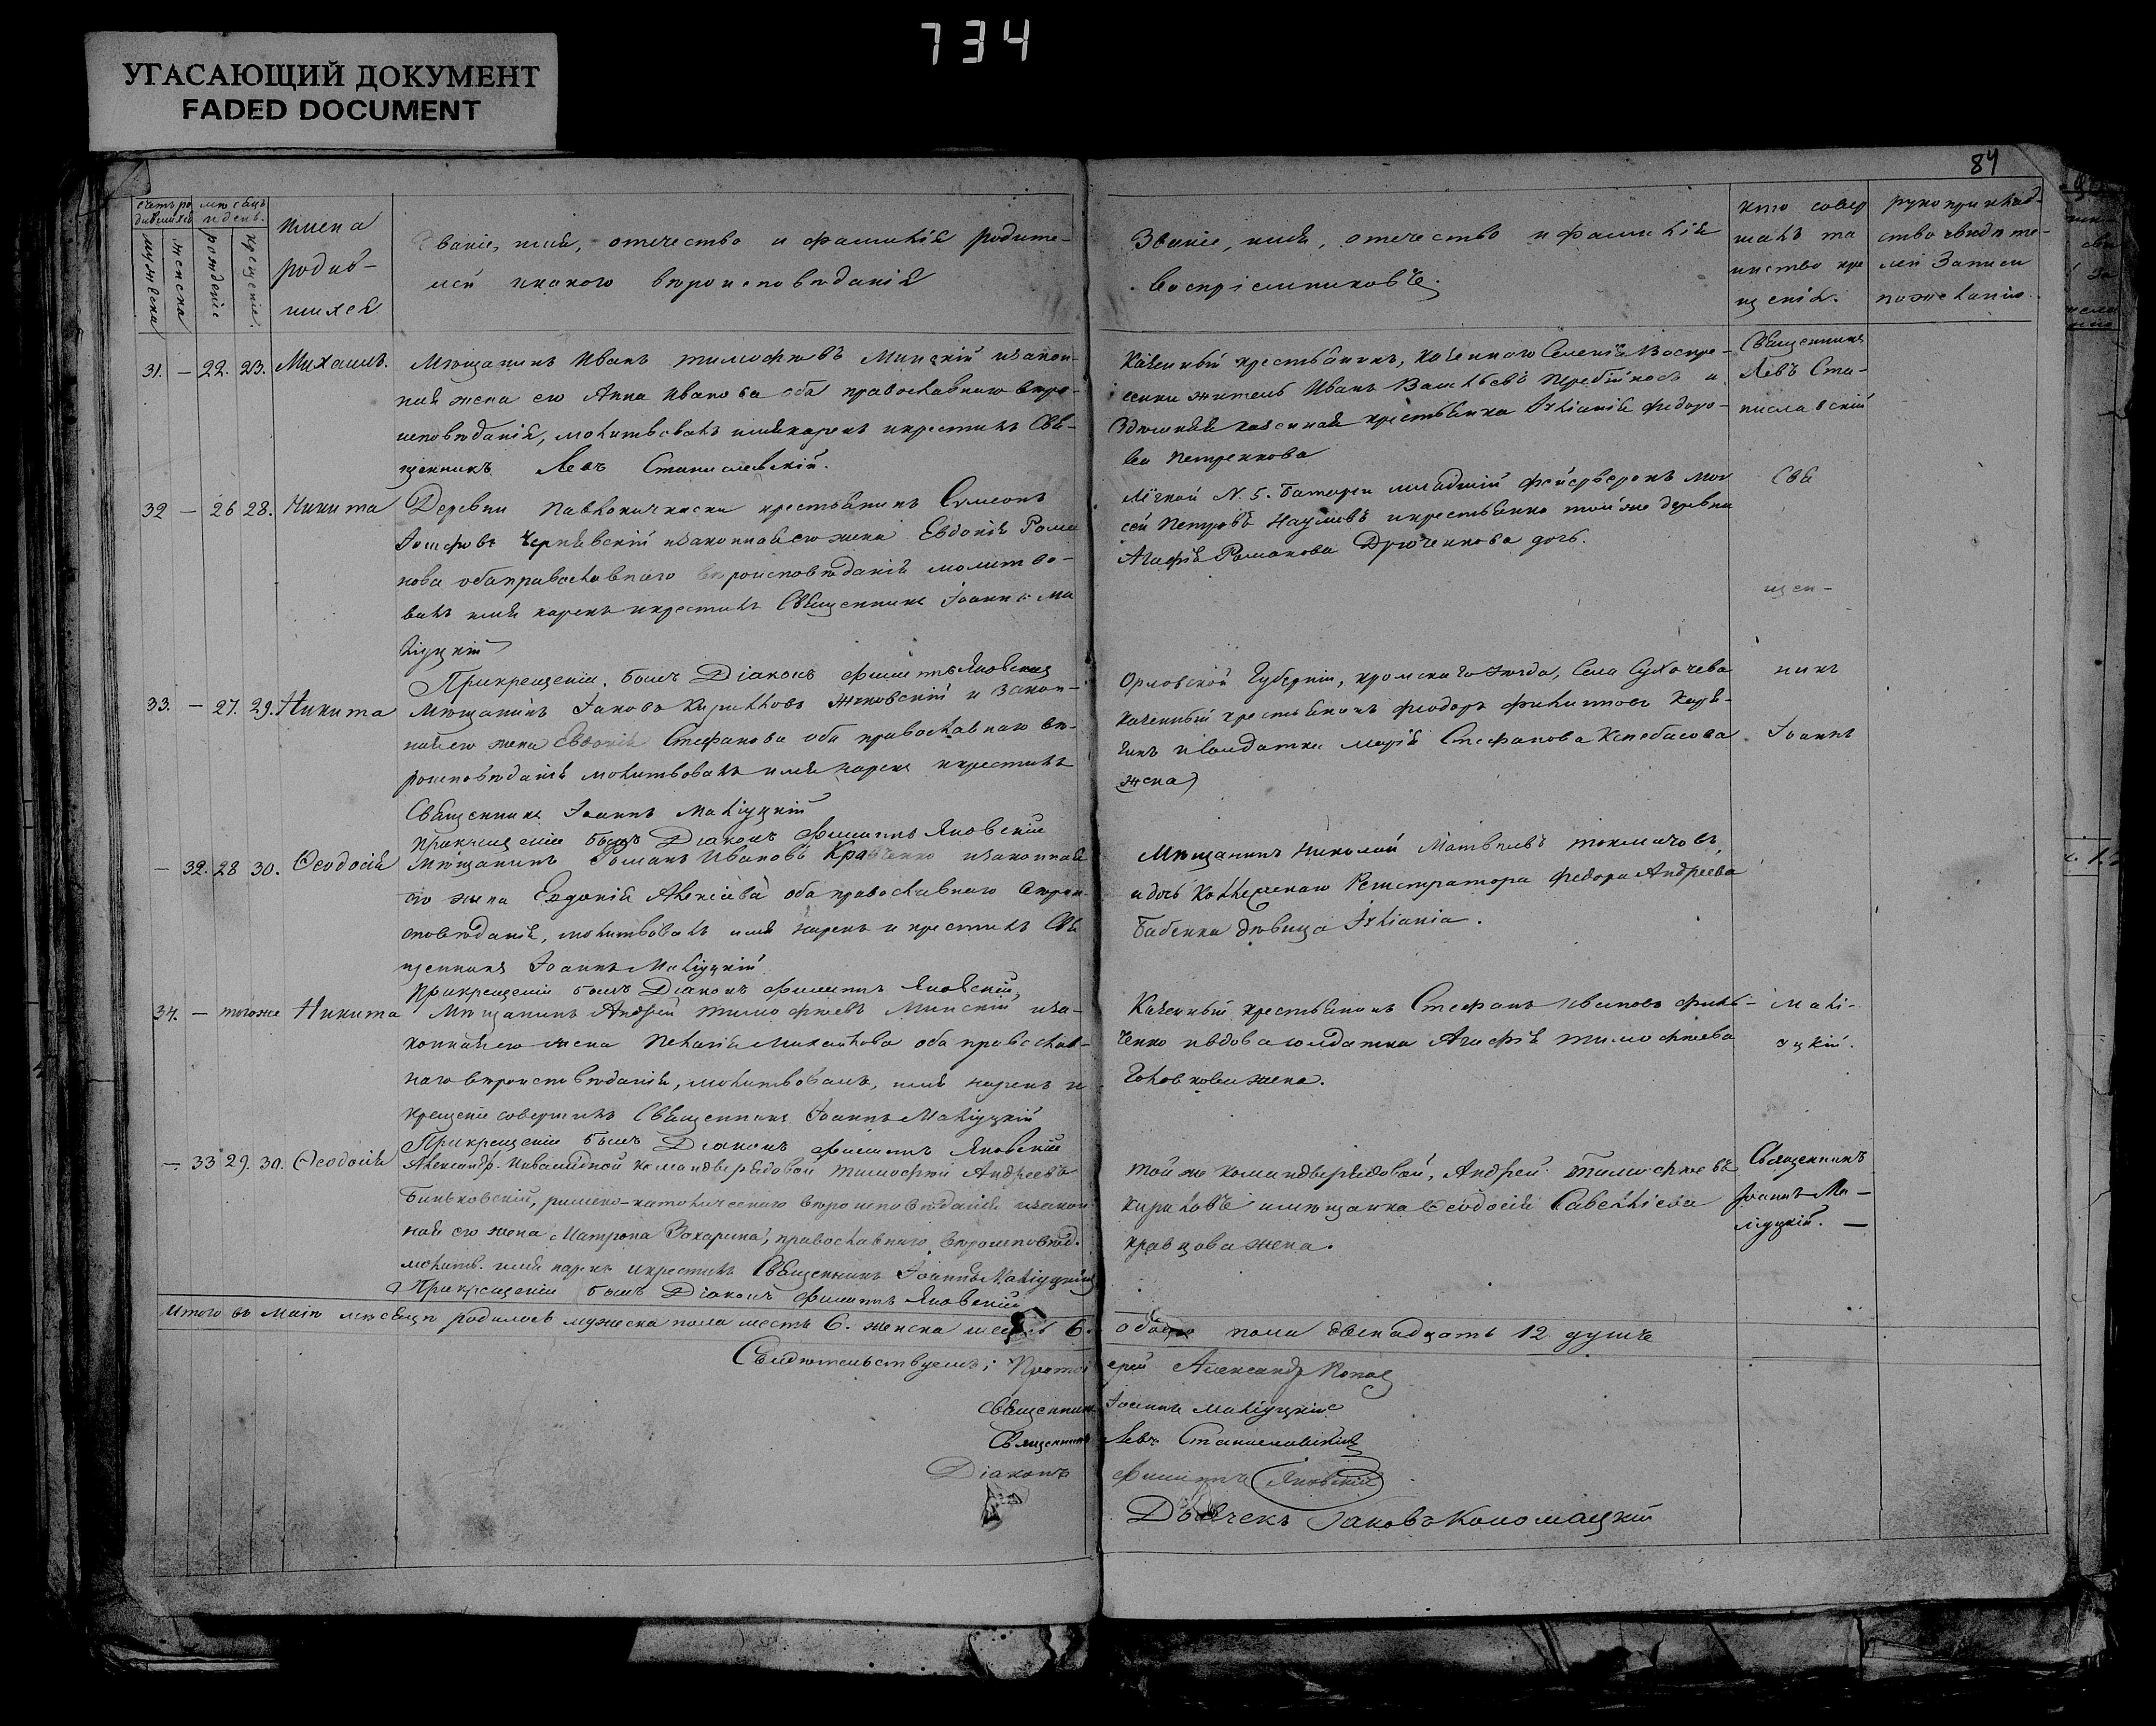 734
УГАСАЮЩИЙ ДОКУМЕНТ
FADED DOCUMENT
84
мужеска
женска
рожденіе
крещеніе.
имена
родив-
шихся
Званіе, имя, отечество и фамилія родите-
лей и какого вѣроисповѣданія
Званіе, имя, отечество и фамилія
воспріемниковъ.
кто совер
шалъ та
инство кре
щенія.
рукоприклад-
ство свидѣте-
лей записи
по желанію.
31. — 22. 23. Михаилъ.
Мѣщанинъ Иванъ Тимофѣевъ Минскій и закон-
ная жена его Анна Иванова оба православнаго вѣро-
исповѣданія, молитвовалъ имя нарекъ и крестилъ Свя-
щенникъ Левъ Станиславскій.
Казенный крестьянинъ, казеннаго Селенія Воскре-
сенки житель Иванъ Васильевъ и
казенная крестьянка Іуліанія Федоро-
ва Петренкова
Священникъ
Левъ Ста-
ниславскій
32 — 26 28. Никита
Деревни крестьянинъ Симеонъ
Іосифовъ Чернявскій и законная его жена Евдокія Рома
нова оба православнаго вѣроисповѣданія молитво-
валъ имя нарекъ и крестилъ Священникъ Іоаннъ Ма
ліуцкій
При крещеніи былъ Діаконъ Филиппъ Яновскій
лёгкой N. 5. Батареи младшій фейерверкъ Мои
сей Петровъ Наумовъ и крестьянка той же деревни
Агафія Романова Дрюченкова дочь.
Свя
щен-
33. — 27. 29. Никита
Мѣщанинъ Іаковъ Кирилловъ и закон-
ная его жена Евдокія Стефанова оба православнаго вѣ-
роисповѣданія молитвовалъ имя нарекъ и крестилъ
Священникъ Іоаннъ Маліуцкій
При крещеніи былъ Діаконъ Филиппъ Яновскій
Орловской Губерніи, кромскаго уѣзда, Села Сухочева
казенный крестьянинъ Феодоръ Филипповъ
и солдатка Марія Стефанова
жена
никъ
Іоаннъ
— 32. 28 30. Ѳеодосія
Мѣщанинъ Романъ Ивановъ Кравченко и законная
его жена Евдокія Алексіева оба православнаго вѣрои
сповѣданія, молитвовалъ имя нарекъ и крестилъ Свя
щенникъ Іоаннъ Маліуцкій
При крещеніи былъ Діаконъ Филиппъ Яновскій
Мѣщанинъ Николай Матвѣевъ Токмачовъ,
и дочь Коллежскаго Регистратора Федора Андреева
Бабенка дѣвица Іуліанія.
34. — тогоже Никита
Мѣщанинъ Андрей Тимофѣевъ Минскій и за-
конная его жена Пелагія Михайлова оба православ-
наго вѣроисповѣданія, молитвовалъ, имя нарекъ и
крещеніе совершилъ Священникъ Іоаннъ Маліуцкій
При крещеніи былъ Діаконъ Филиппъ Яновскій
Казенный крестьянинъ Стефанъ Ивановъ Филь-
ченко и вдова солдатка Агафія Тимофѣева
Головкова жена.
Малі-
уцкій.
— 33 29. 30. Ѳеодосія
Александр. Инвалидной команды рядовой Тимофѣй Андреевъ
Биньковскій, римско-католическаго вѣроисповѣданія и закон
ная его жена Матрона Захарина, православнаго вѣроисповѣд.
молитв. имя нарекъ и крестилъ Священникъ Іоаннъ Маліуцкій
При крещеніи былъ Діаконъ Филиппъ Яновскій
той же команды рядовой, Андрей Тимофѣевъ
Кириловъ и мѣщанка Ѳеодосія Савелліева
Кравцова жена.
Священникъ
Іоаннъ Ма-
ліуцкій. —
Итого въ Маіи мѣсяцѣ родилось мужеска пола шесть 6. женска шесть 6. обоего пола двенадцать 12 душъ
Свидѣтельствуемъ: Протоіерей Александръ Поповъ
Священникъ Іоаннъ Маліуцкій
Священникъ Левъ Станиславскій
Діаконъ Филиппъ Яновскій
Дьячекъ Іаковъ